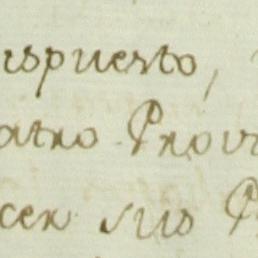 ispuesto,
atro Provi
cer sus P